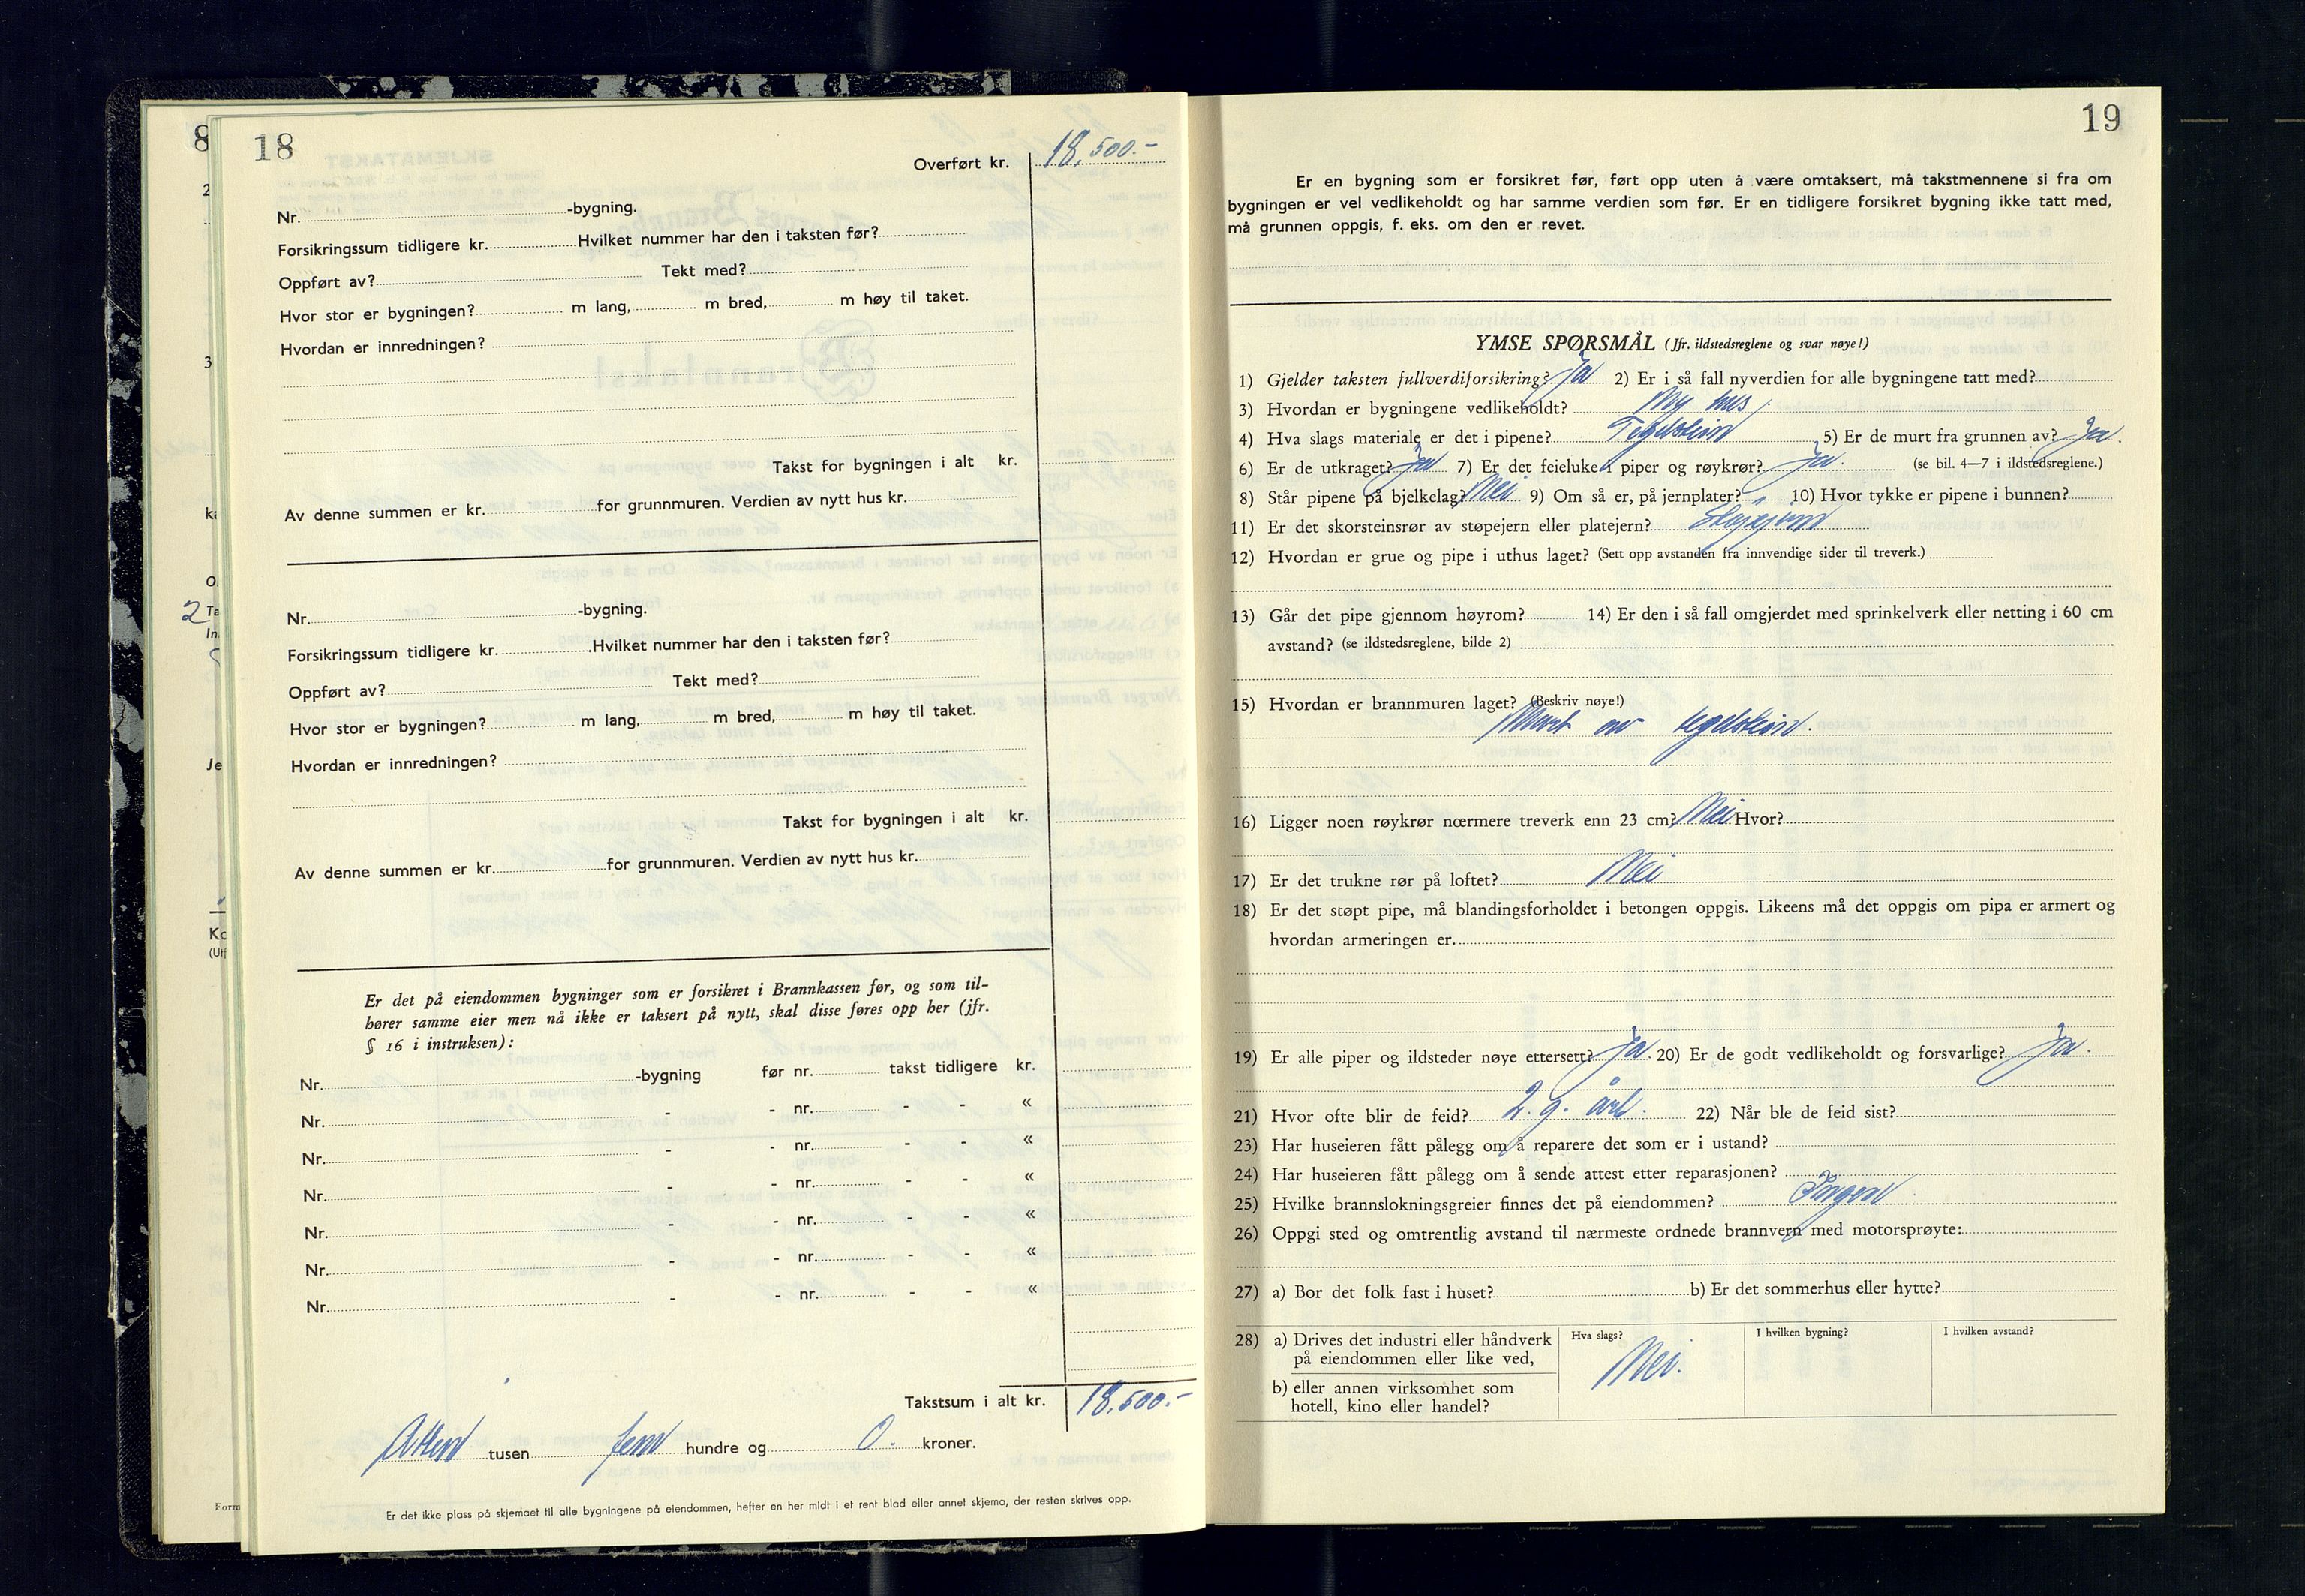 18
Overført kr. 18.500.-
Nr. -bygning.
Forsikringssum tidligere kr. Hvilket nummer har den i taksten før?
Oppført av? Tekt med?
Hvor stor er bygningen? m lang, m bred, m høy til taket.
Hvordan er innredningen?
Takst for bygningen i alt kr.
Av denne summen er kr. for grunnmuren. Verdien av nytt hus kr.
Nr. -bygning.
Forsikringssum tidligere kr. Hvilket nummer har den i taksten før?
Oppført av? Tekt med?
Hvor stor er bygningen? m lang, m bred, m høy til taket.
Hvordan er innredningen?
Takst for bygningen i alt kr.
Av denne summen er kr. for grunnmuren. Verdien av nytt hus kr.
Er det på eiendommen bygninger som er forsikret i Brannkassen før, og som til-
hører samme eier men nå ikke er taksert på nytt, skal disse føres opp her (jfr.
§ 16 i instruksen):
Nr. -bygning før nr. takst tidligere kr.
Nr. - - nr. - - «
Nr. - - nr. - - «
Nr. - - nr. - - «
Nr. - - nr. - - «
Nr. - - nr. - - «
Nr. - - nr. - - «
Takstsum i alt kr. 18.500.-
Atten tusen fem hundre og 0. kroner.
Er det ikke plass på skjemaet til alle bygningene på eiendommen, hefter en her midt i et rent blad eller annet skjema, der resten skrives opp.
19
Er en bygning som er forsikret før, ført opp uten å være omtaksert, må takstmennene si fra om
bygningen er vel vedlikeholdt og har samme verdien som før. Er en tidligere forsikret bygning ikke tatt med,
må grunnen oppgis, f. eks. om den er revet.
YMSE SPØRSMÅL (Jfr. ildstedsreglene og svar nøye!)
1) Gjelder taksten fullverdiforsikring? Ja 2) Er i så fall nyverdien for alle bygningene tatt med?
3) Hvordan er bygningene vedlikeholdt? Ny hus
4) Hva slags materiale er det i pipene? Teglstein 5) Er de murt fra grunnen av? Ja.
6) Er de utkraget? Ja 7) Er det feieluke i piper og røykrør? Ja. (se bil. 4—7 i ildstedsreglene.)
8) Står pipene på bjelkelag? Nei 9) Om så er, på jernplater? 10) Hvor tykke er pipene i bunnen?
11) Er det skorsteinsrør av støpejern eller platejern? Støpejern
12) Hvordan er grue og pipe i uthus laget? (Sett opp avstanden fra innvendige sider til treverk.)
13) Går det pipe gjennom høyrom? 14) Er den i så fall omgjerdet med sprinkelverk eller netting i 60 cm
avstand? (se ildstedsreglene, bilde 2)
15) Hvordan er brannmuren laget? (Beskriv nøye!)
Murt av teglstein.
16) Ligger noen røykrør nærmere treverk enn 23 cm? Nei Hvor?
17) Er det trukne rør på loftet? Nei
18) Er det støpt pipe, må blandingsforholdet i betongen oppgis. Likeens må det oppgis om pipa er armert og
hvordan armeringen er.
19) Er alle piper og ildsteder nøye ettersett? Ja. 20) Er de godt vedlikeholdt og forsvarlige? Ja.
21) Hvor ofte blir de feid? 2. g. årl. 22) Når ble de feid sist?
23) Har huseieren fått pålegg om å reparere det som er i ustand?
24) Har huseieren fått pålegg om å sende attest etter reparasjonen?
25) Hvilke brannslokningsgreier finnes det på eiendommen? Ingen
26) Oppgi sted og omtrentlig avstand til nærmeste ordnede brannvern med motorsprøyte:
27) a) Bor det folk fast i huset? b) Er det sommerhus eller hytte?
28) a) Drives det industri eller håndverk
på eiendommen eller like ved,
b) eller annen virksomhet som
hotell, kino eller handel?
Hva slags?
Nei.
I hvilken bygning?
I hvilken avstand?